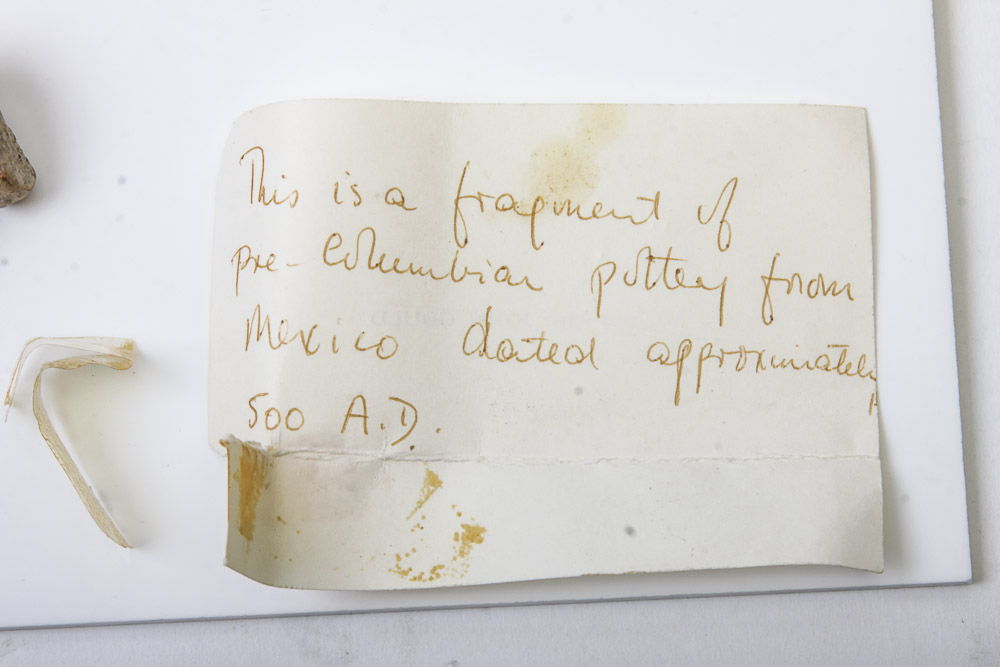 This is a fragment of
pre-Columbian pottery from
Mexico dated approximately
500 A.D.